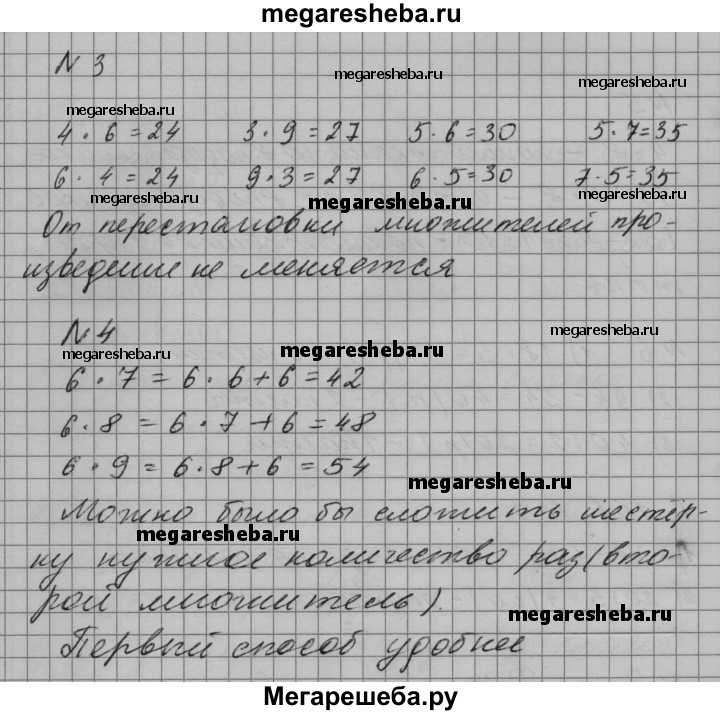 megaresheba.ru
N 3
megaresheba.ru megaresheba.ru
megaresheba.ru
4 · 6 = 24 3 · 9 = 27 5 · 6 = 30 5 · 7 = 35
6 · 4 = 24 9 · 3 = 27 6 · 5 = 30 7 · 5 = 35
megaresheba.ru megaresheba.ru megaresheba.ru
От перестановки множителей про-
изведение не меняется
N 4 megaresheba.ru
megaresheba.ru megaresheba.ru
6 · 7 = 6 · 6 + 6 = 42
6 · 8 = 6 · 7 + 6 = 48
6 · 9 = 6 · 8 + 6 = 54
megaresheba.ru
Можно было бы сложить шестёр-
megaresheba.ru
ку нужное количество раз (вто-
рой множитель).
megaresheba.ru
Первый способ удобнее
Мегарешеба.ру